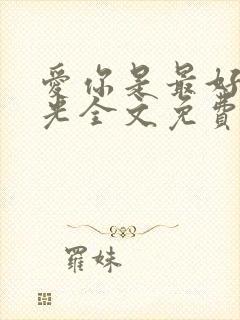 愛你是最好
光全文免費
羅妹